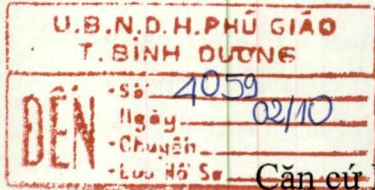 U.B.N.D.H.PHÚ GIÁO
T. BÌNH DƯƠNG
ĐẾN
- Số: 4059
Ngày 02/10
- Chuyển
- Lưu Hồ Sơ
Căn cứ